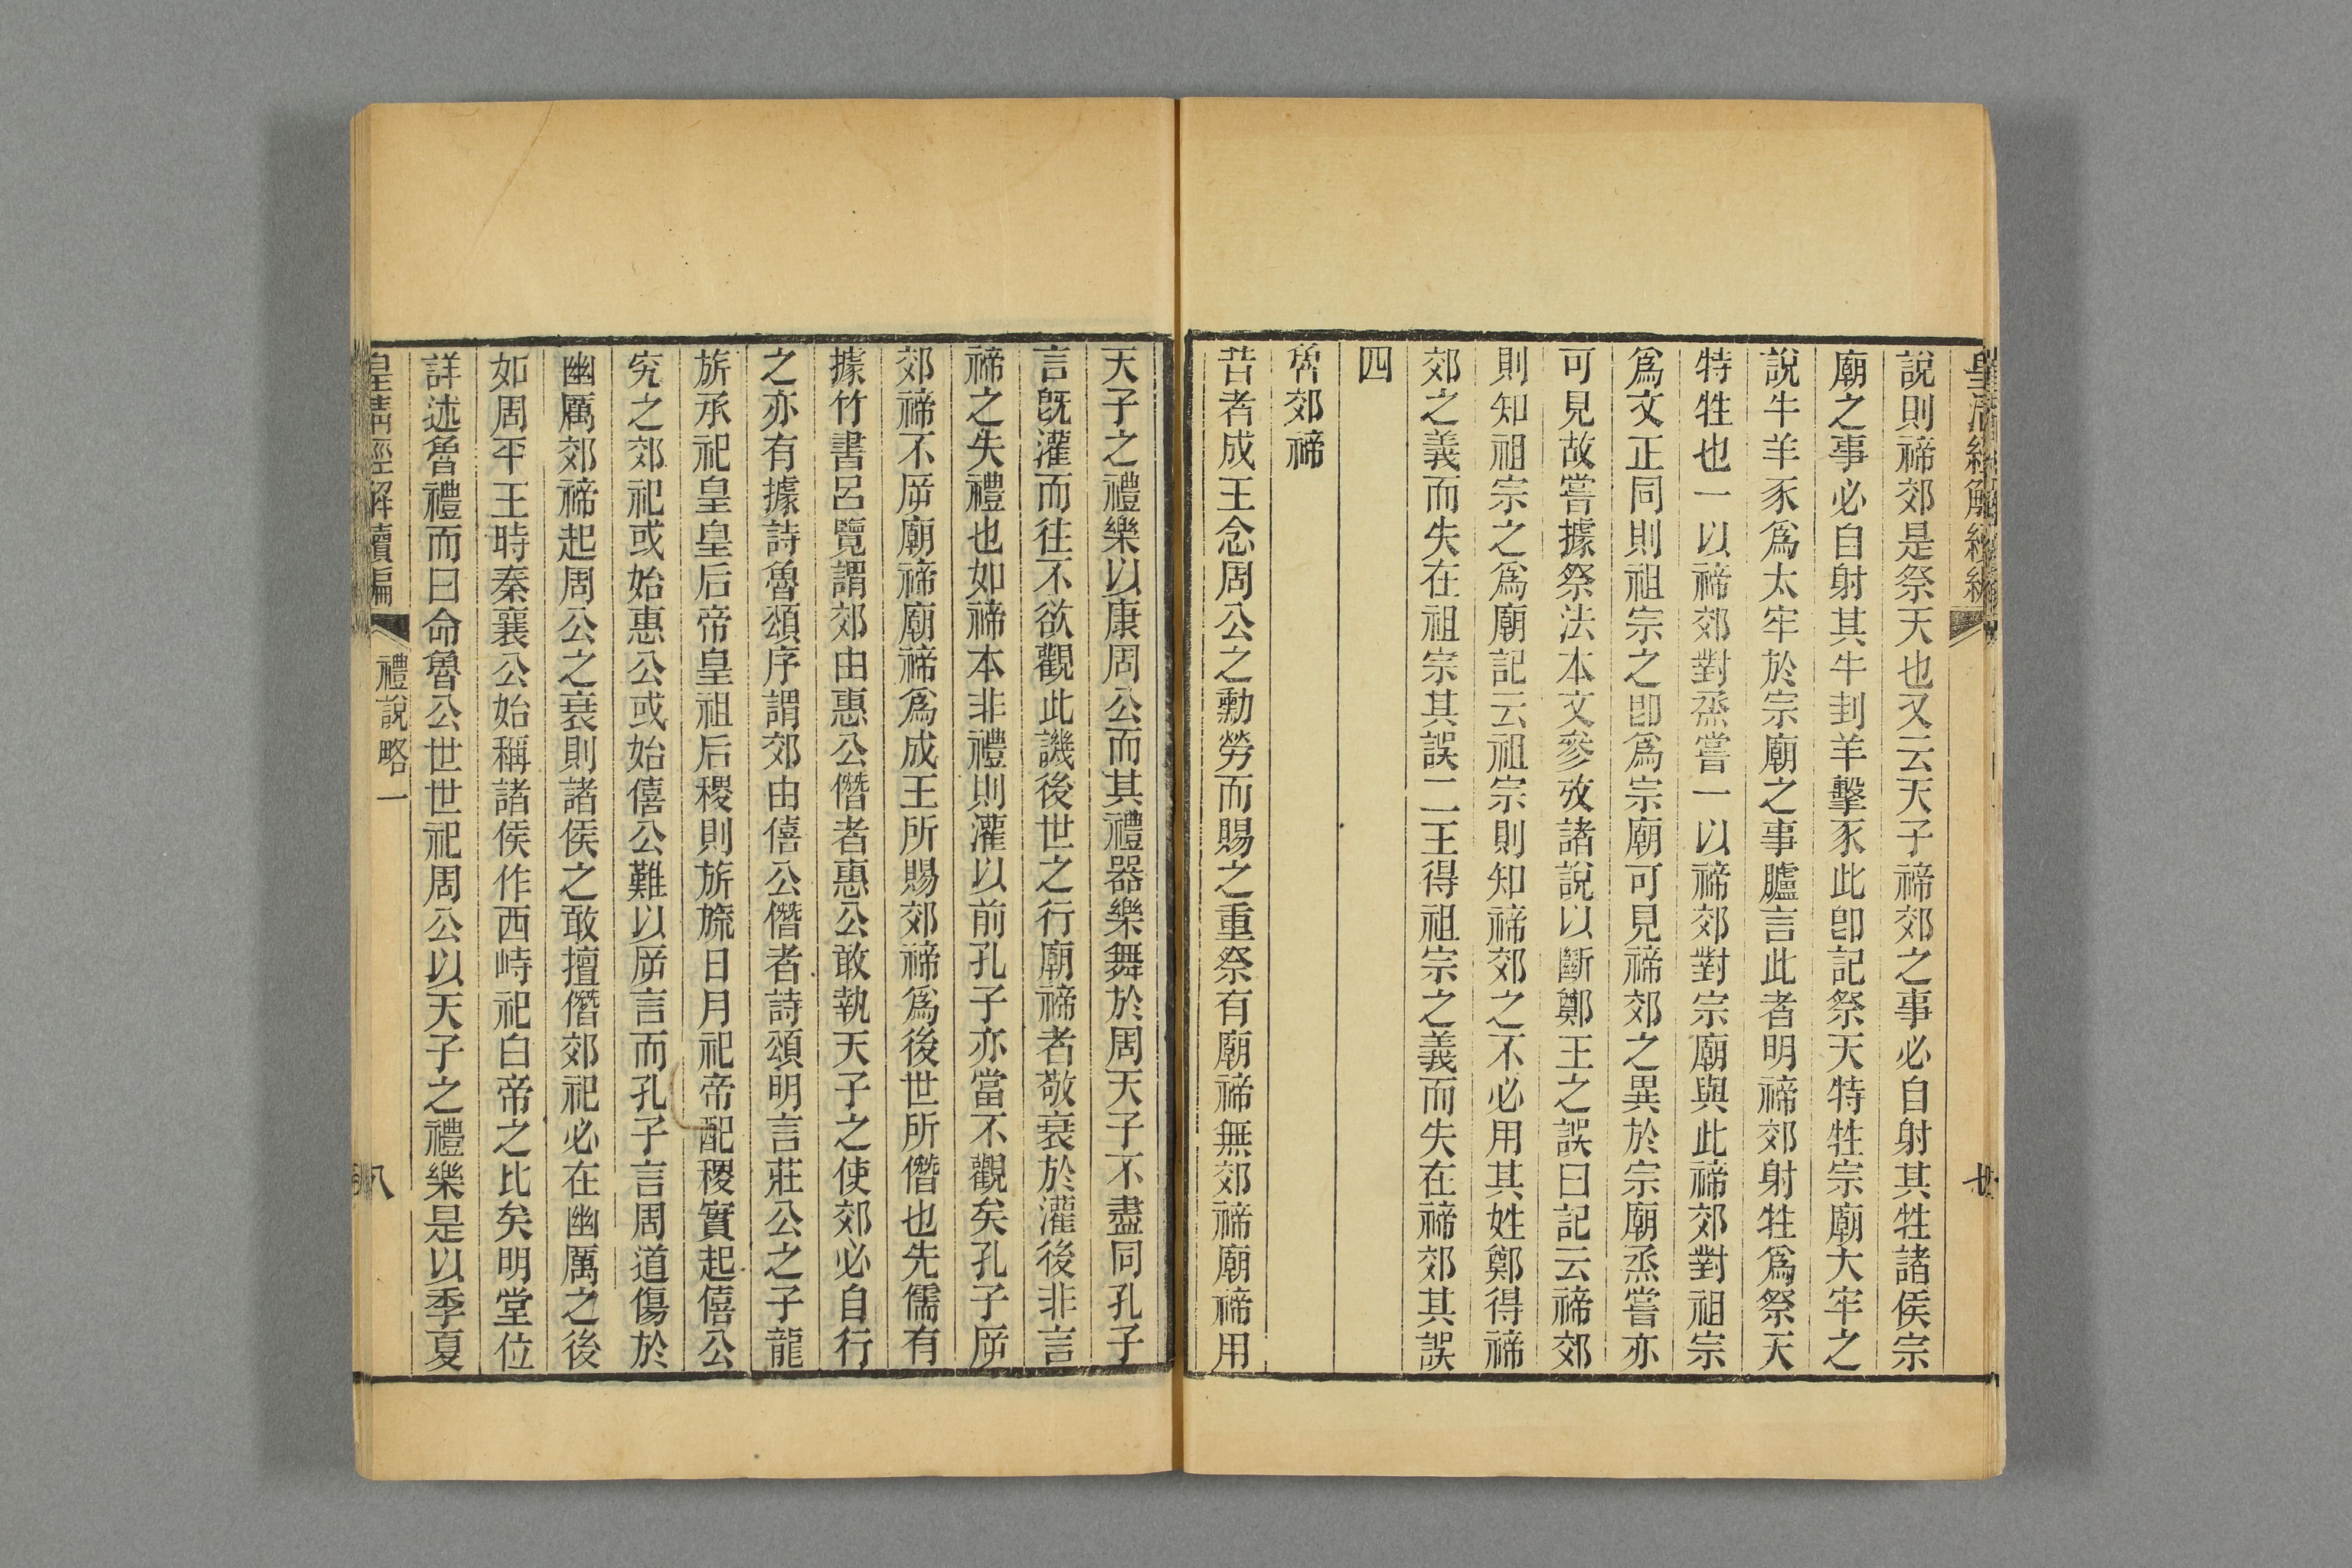 說則禘郊是祭天也又云天子禘郊之事必自射其牲諸侯宗
廟之事必自射其牛刲羊擊豕此卽記祭天特牲宗廟大牢之
說牛羊豕爲太牢於宗廟之事臚言此者明禘郊射牲爲祭天
特牲也一以禘郊對烝嘗一以禘郊對宗廟與此禘郊對祖宗
爲文正同則祖宗之卽爲宗廟可見禘郊之異於宗廟烝嘗亦
可見故嘗據祭法本文參攷諸說以斷鄭王之誤曰記云禘郊
則知祖宗之爲廟記云祖宗則知禘郊之不必用其姓鄭得禘
郊之義而失在祖宗其誤二王得祖宗之義而失在禘郊其誤
四
魯郊禘
昔者成王念周公之勳勞而賜之重祭有廟禘無郊禘廟禘用
天子之禮樂以康周公而其禮器樂舞於周天子不盡同孔子
言旣灌而往不欲觀此譏後世之行廟禘者敬衰於灌後非言
禘之失禮也如禘本非禮則灌以前孔子亦當不觀矣孔子㡿
郊禘不㡿廟禘廟禘爲成王所賜郊禘爲後世所僭也先儒有
據竹書呂覽謂郊由惠公僭者惠公敢執天子之使郊必自行
之亦有據詩魯頌序謂郊由僖公僭者詩頌明言莊公之子龍
旂承祀皇皇后帝皇祖后稷則旂旒日月祀帝配稷實起僖公
究之郊祀或始惠公或始僖公難以㡿言而孔子言周道傷於
幽厲郊禘起周公之衰則諸侯之敢擅僭郊祀必在幽厲之後
如周平王時秦襄公始稱諸侯作西畤祀白帝之比矣明堂位
詳述魯禮而曰命魯公世世祀周公以天子之禮樂是以季夏
皇清經解續編
禮說略一
八